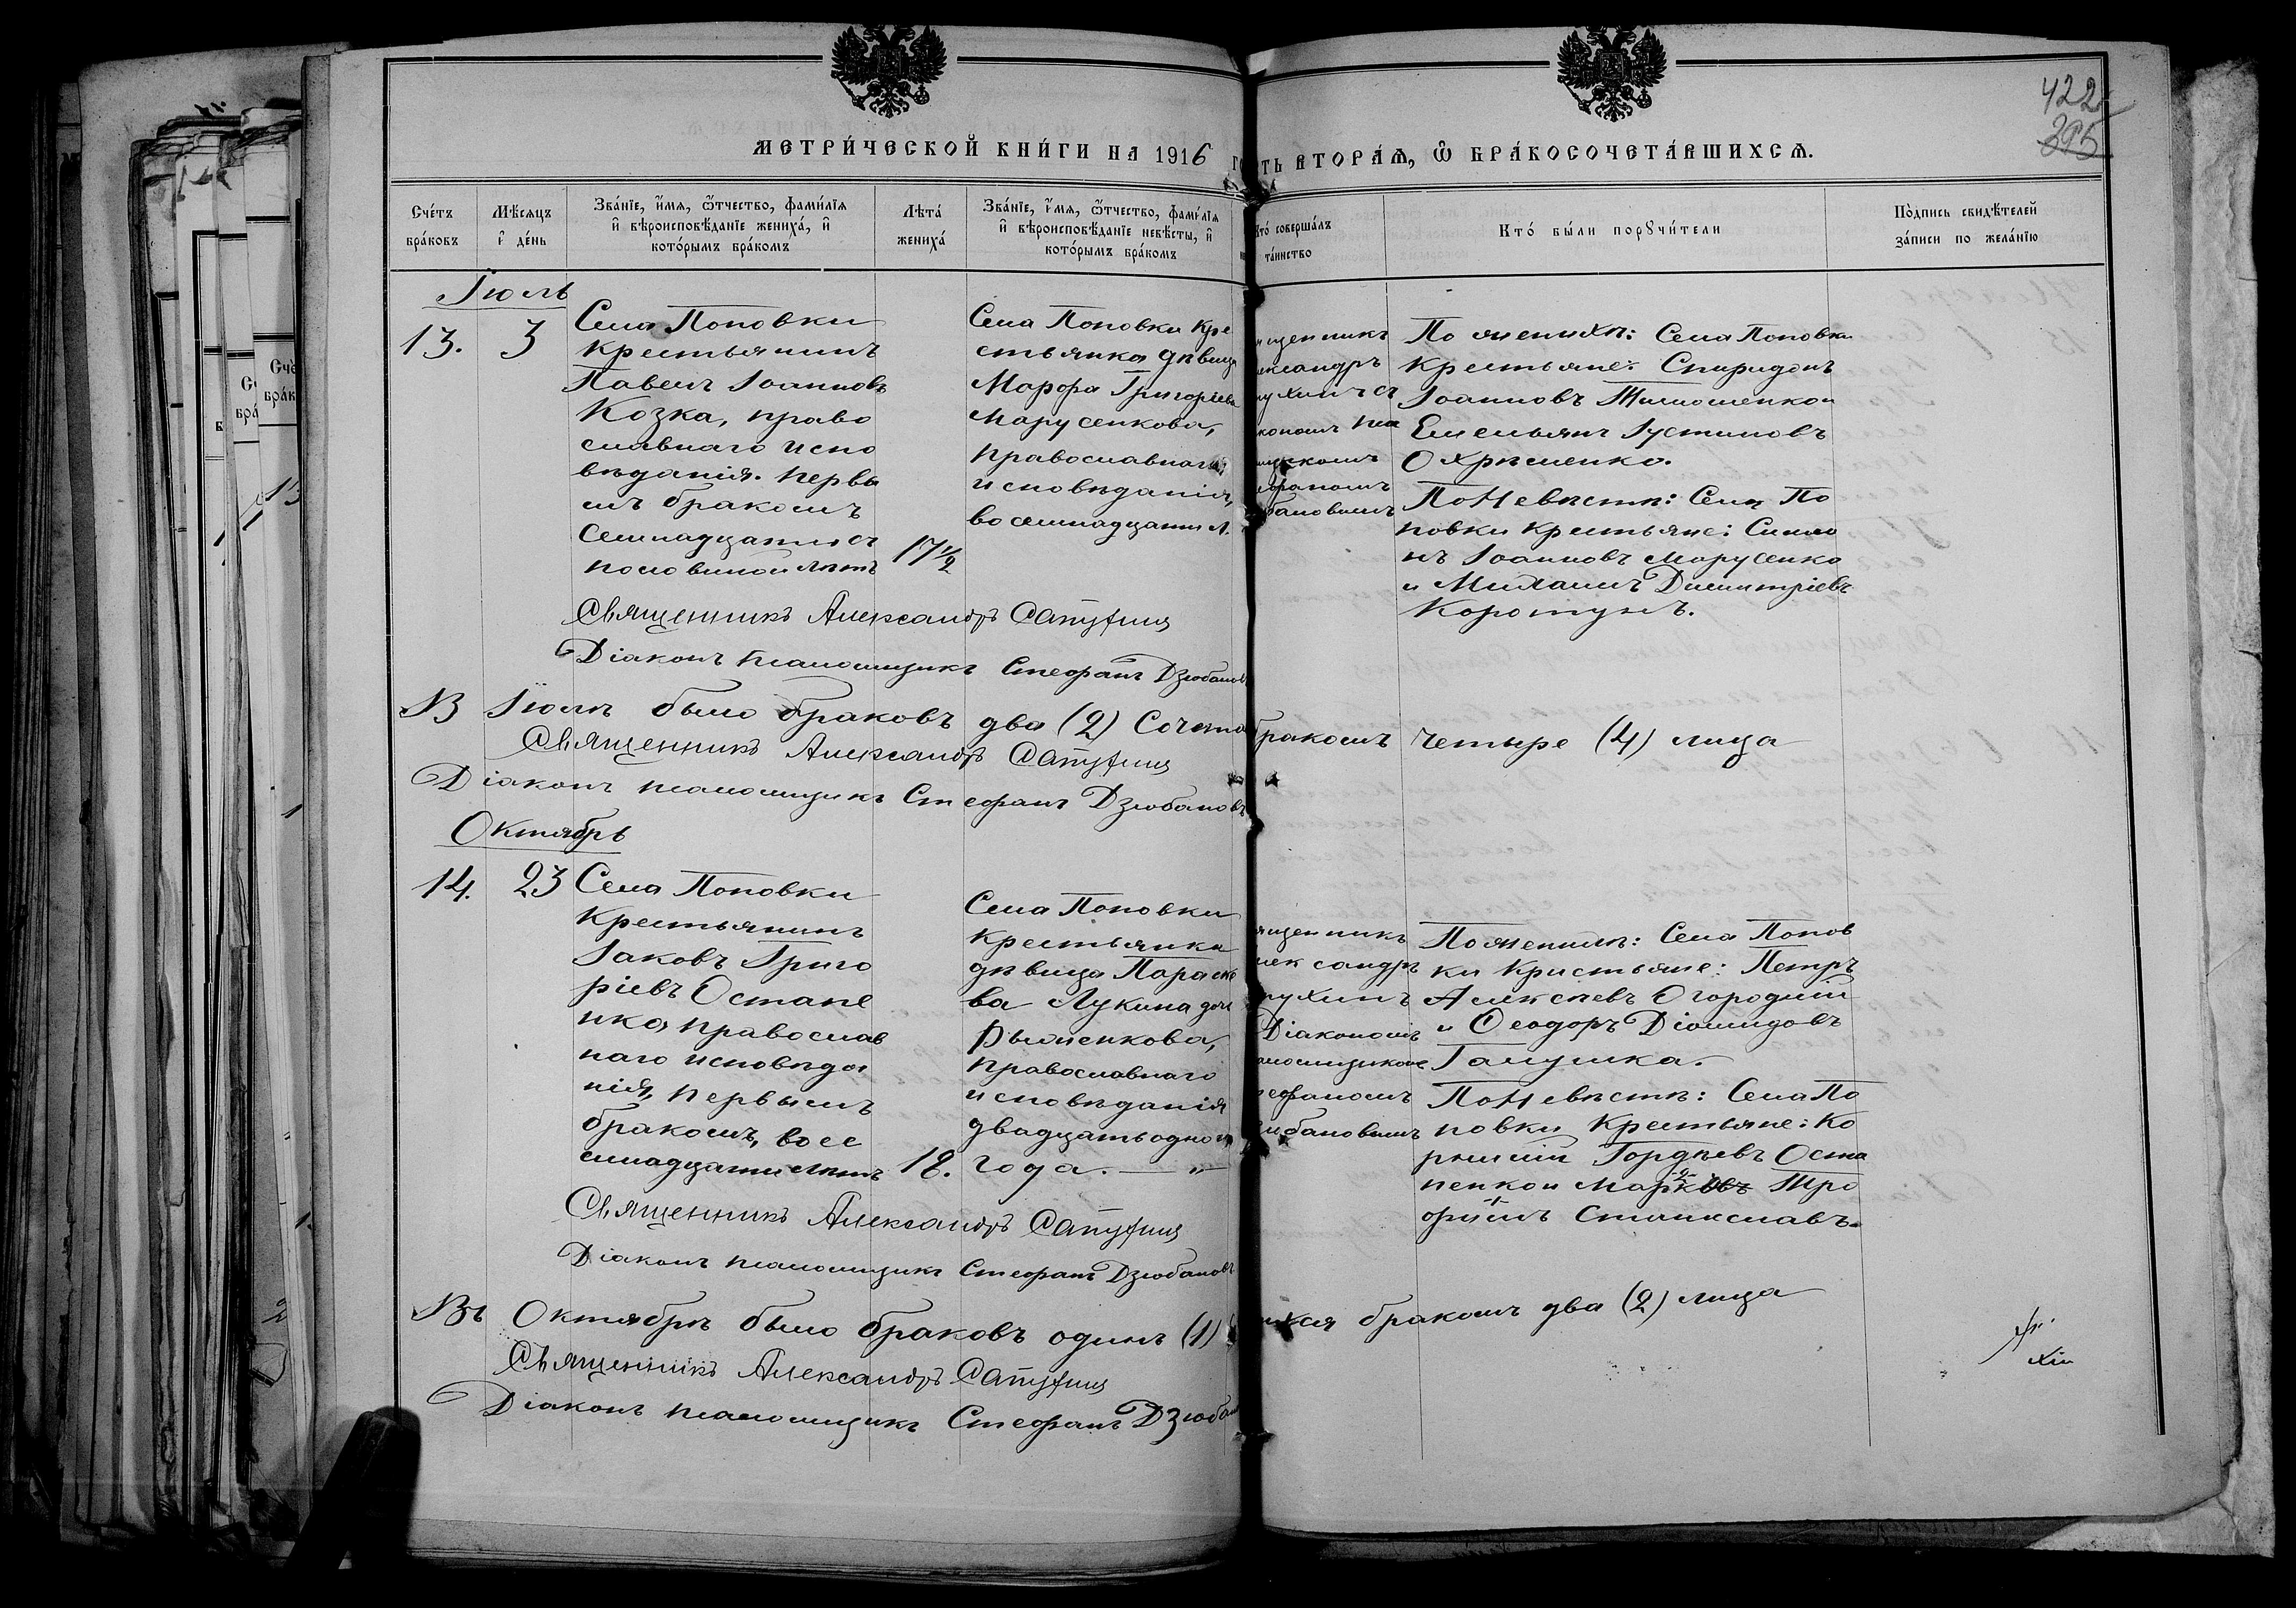 422
395
МЕТРИ́ЧЕСКОЙ КНИ́ГИ НА 1916 го
ть ВТОРА́Я, Ѡ БРА́КОСОЧЕТА́ВШИХСЯ.
Сче́тъ бра́ковъ
Мѣ́сяцъ и҆ де́нь
Зва́нїе, и҆́мя, ѻ҆́тчество, фами́лїя и҆ вѣроисповѣ́данїе жениха́, и҆ кото́рымъ бра́комъ
Лѣта́ жениха́
Зва́нїе, и҆́мя, ѻ҆́тчество, фами́лїя и҆ вѣроисповѣ́данїе невѣ́сты, и҆ кото́рымъ бра́комъ
Кто́ соверша́лъ та́инство
Кто́ бы́ли порꙋчи́тели
По́дпись свидѣ́телей за́писи по жела́нїю
Іюль
13.
3
Села Поповки
крестьянинъ
Павелъ Іоанновъ
Козка, право
славнаго испо
вѣданія. первы
мъ бракомъ
Семнадцати съ
половиной лѣтъ
17 1/2
Села Поповки кре
стьянка дѣвица
Марфа Григоріева
Марусенкова,
православнаго
исповѣданія,
восемнадцати л.
щенникъ
ександръ
пухинъ съ
кономъ пса
мщикомъ
ефаномъ
бановымъ
По женихѣ: Села Поповки
крестьяне: Спиридонъ
Іоанновъ Тимошенко и
Емельянъ Іустиновъ
Охрименко.
По Невѣстѣ: Села По
повки крестьяне: Симео
нъ Іоанновъ Марусенко
и Михаилъ Димитріевъ
Коротунъ.
Священникъ Александръ Сапухинъ
Діаконъ псаломщикъ Стефанъ Дзюбановъ
В Іюлѣ было браковъ два (2) Сочета
бракомъ четыре (4) лица
Священникъ Александръ Сапухинъ
Діаконъ псаломщикъ Стефанъ Дзюбановъ
Октябрь
14.
23
Села Поповки
Крестьянинъ
Іаковъ Григо
ріевъ Остапе
нко, православ
наго исповѣда
нія, первымъ
бракомъ, восе
мнадцати лѣтъ
18.
Села Поповки
крестьянка
дѣвица Параске
ва Лукина доч
православнаго
исповѣданія
двадцать одного
года. — „ —
щенникъ
лександръ
пухинъ
Діакономъ
аломщикомъ
тефаномъ
зюбановымъ
По женихѣ: Села Попов
ки Кристьяне: Петръ
Алексѣевъ Огородній
и Ѳеодоръ Діомидовъ
Галушка.
По Невѣстѣ: Села По
повки Крестьяне: Ко
рнилій Гордѣевъ Оста
пенко и Тро
фимъ
Священникъ Александръ Сапухинъ
Діаконъ псаломщикъ Стефанъ Дзюбановъ
Въ Октябрѣ было браковъ одинъ (1)
бракомъ два (2) лица
Священникъ Александръ Сапухинъ
Діаконъ псаломщикъ Стефанъ Дзюба